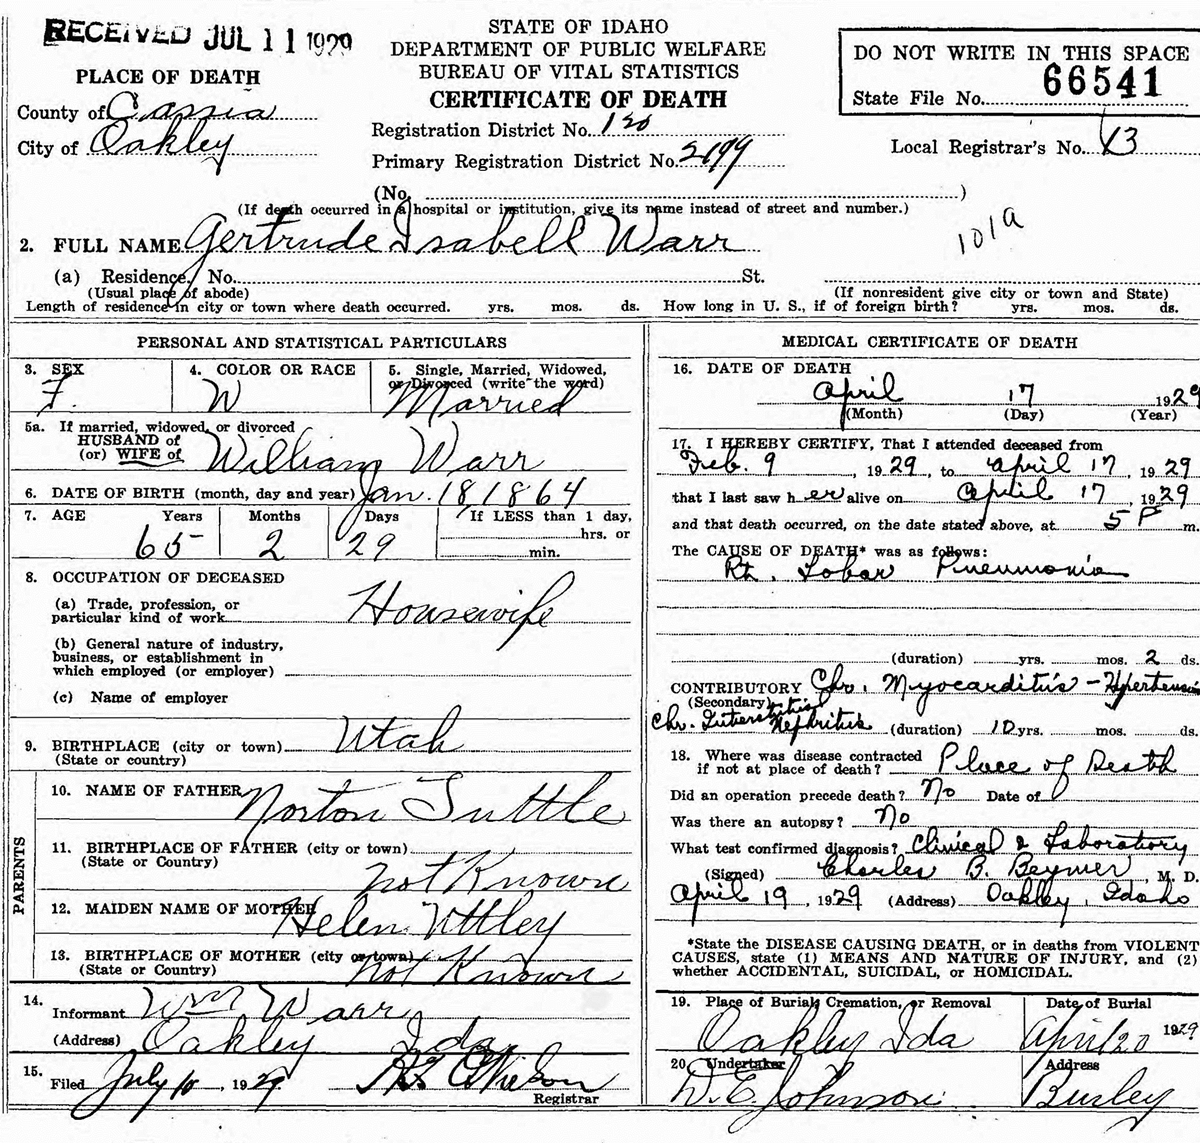 RECEIVED JUL 11 1929
STATE OF IDAHO
DEPARTMENT OF PUBLIC WELFARE
BUREAU OF VITAL STATISTICS
CERTIFICATE OF DEATH
DO NOT WRITE IN THIS SPACE
State File No. 66541
PLACE OF DEATH
County of Cassia
City of Oakley
Registration District No. 120
Primary Registration District No. 2199
Local Registrar's No. 13
(No. )
(If death occurred in a hospital or institution, give its name instead of street and number.)
101a
2. FULL NAME Gertrude Isabell Warr
(a) Residence, No. St.
(Usual place of abode)
(If nonresident give city or town and State)
Length of residence in city or town where death occurred. yrs. mos. ds. How long in U. S., if of foreign birth? yrs. mos. ds.
PERSONAL AND STATISTICAL PARTICULARS
3. SEX F.
4. COLOR OR RACE W
5. Single, Married, Widowed, or Divorced (write the word) Married
5a. If married, widowed, or divorced
HUSBAND of
(or) WIFE of William Warr
6. DATE OF BIRTH (month, day and year) Jan. 18, 1864
7. AGE Years Months Days If LESS than 1 day,
65 2 29 hrs. or
min.
8. OCCUPATION OF DECEASED
(a) Trade, profession, or
particular kind of work Housewife
(b) General nature of industry,
business, or establishment in
which employed (or employer)
(c) Name of employer
9. BIRTHPLACE (city or town) Utah
(State or country)
PARENTS
10. NAME OF FATHER Norton Tuttle
11. BIRTHPLACE OF FATHER (city or town)
(State or Country) not Known
12. MAIDEN NAME OF MOTHER Helen Uttley
13. BIRTHPLACE OF MOTHER (city or town)
(State or Country) not Known
14.
Informant Wm Warr
(Address) Oakley Ida
15.
Filed July 10, 1929
Registrar
MEDICAL CERTIFICATE OF DEATH
16. DATE OF DEATH
April 17 1929
(Month) (Day) (Year)
17. I HEREBY CERTIFY, That I attended deceased from
Feb. 9, 1929, to April 17, 1929
that I last saw her alive on April 17, 1929
and that death occurred, on the date stated above, at 5 P m.
The CAUSE OF DEATH* was as follows:
Rt. Lobar Pneumonia
(duration) yrs. mos. 2 ds.
CONTRIBUTORY Chr. Myocarditis - Hypertension
(Secondary)
Chr. Interstitial Nephritis (duration) 10 yrs. mos. ds.
18. Where was disease contracted
if not at place of death? Place of Death
Did an operation precede death? No Date of
Was there an autopsy? No
What test confirmed diagnosis? Clinical & Laboratory
(Signed) Charles B. Beymer, M. D.
April 19, 1929 (Address) Oakley, Idaho
*State the DISEASE CAUSING DEATH, or in deaths from VIOLENT
CAUSES, state (1) MEANS AND NATURE OF INJURY, and (2)
whether ACCIDENTAL, SUICIDAL, or HOMICIDAL.
19. Place of Burial, Cremation, or Removal Date of Burial
Oakley Ida April 20 1929
20. Undertaker Address
D. E. Johnson Burley